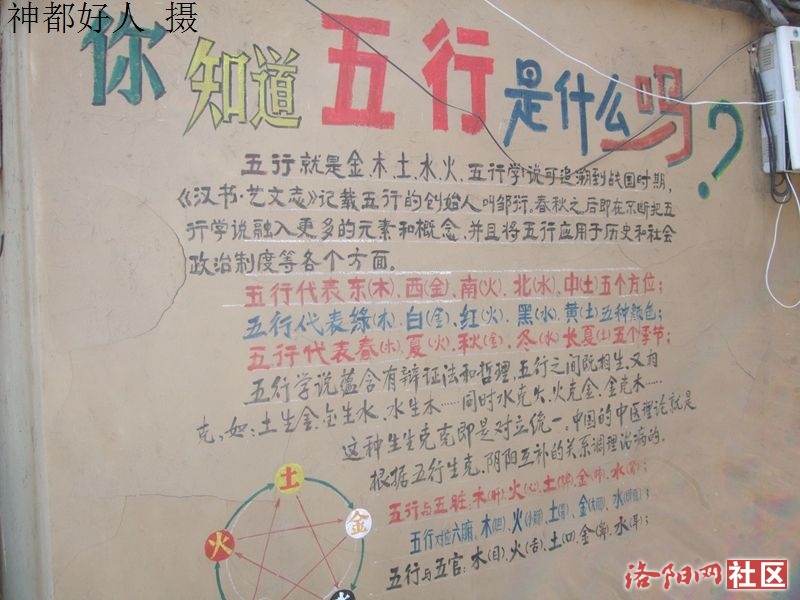 神都好人 摄
你知道五行是什么吗？
五行就是金、木、土、水、火、五行学说可追溯到战国时期，
《汉书·艺文志》记载五行的创始人叫邹衍。春秋之后即在不断把五
行学说融入更多的元素和概念，并且将五行应用于历史和社会
政治制度等各个方面。
五行代表东(木)、西(金)、南(火)、北(水)、中(土)五个方位；
五行代表綠(木)、白(金)、红(火)、黑(水)、黄(土)五种颜色；
五行代表春(木)、夏(火)、秋(金)、冬(水)长夏(土)五个季节；
五行学说蕴含有辩证法和哲理，五行之间既相生，又相
克，如：土生金、金生水、水生木……同时水克火、火克金、金克木……
这种生生克克即是对立统一。中国的中医理论就是
根据五行生克、阴阳互补的关系调理治病的。
五行与五脏：木(肝)、火(心)、土(脾)、金(肺)、水(肾)；
五行对应六腑、木(胆)、火(小肠)、土(胃)、金(大肠)、水(膀胱)；
五行与五官：木(目)、火(舌)、土(口)、金(鼻)、水(耳)；
土
金
火
水
洛阳网社区